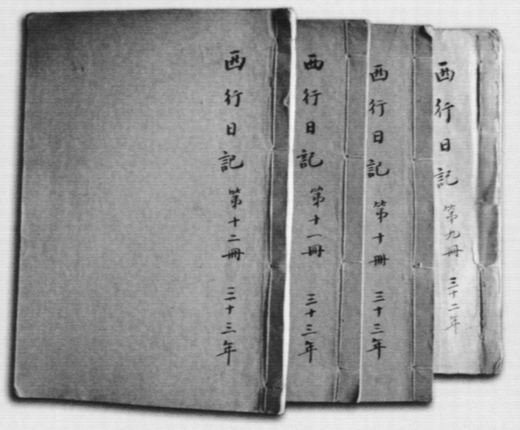 西行日記 第十二冊 三十三年
西行日記 第十一冊 三十三年
西行日記 第十冊 三十三年
西行日記 第九冊 三十二年